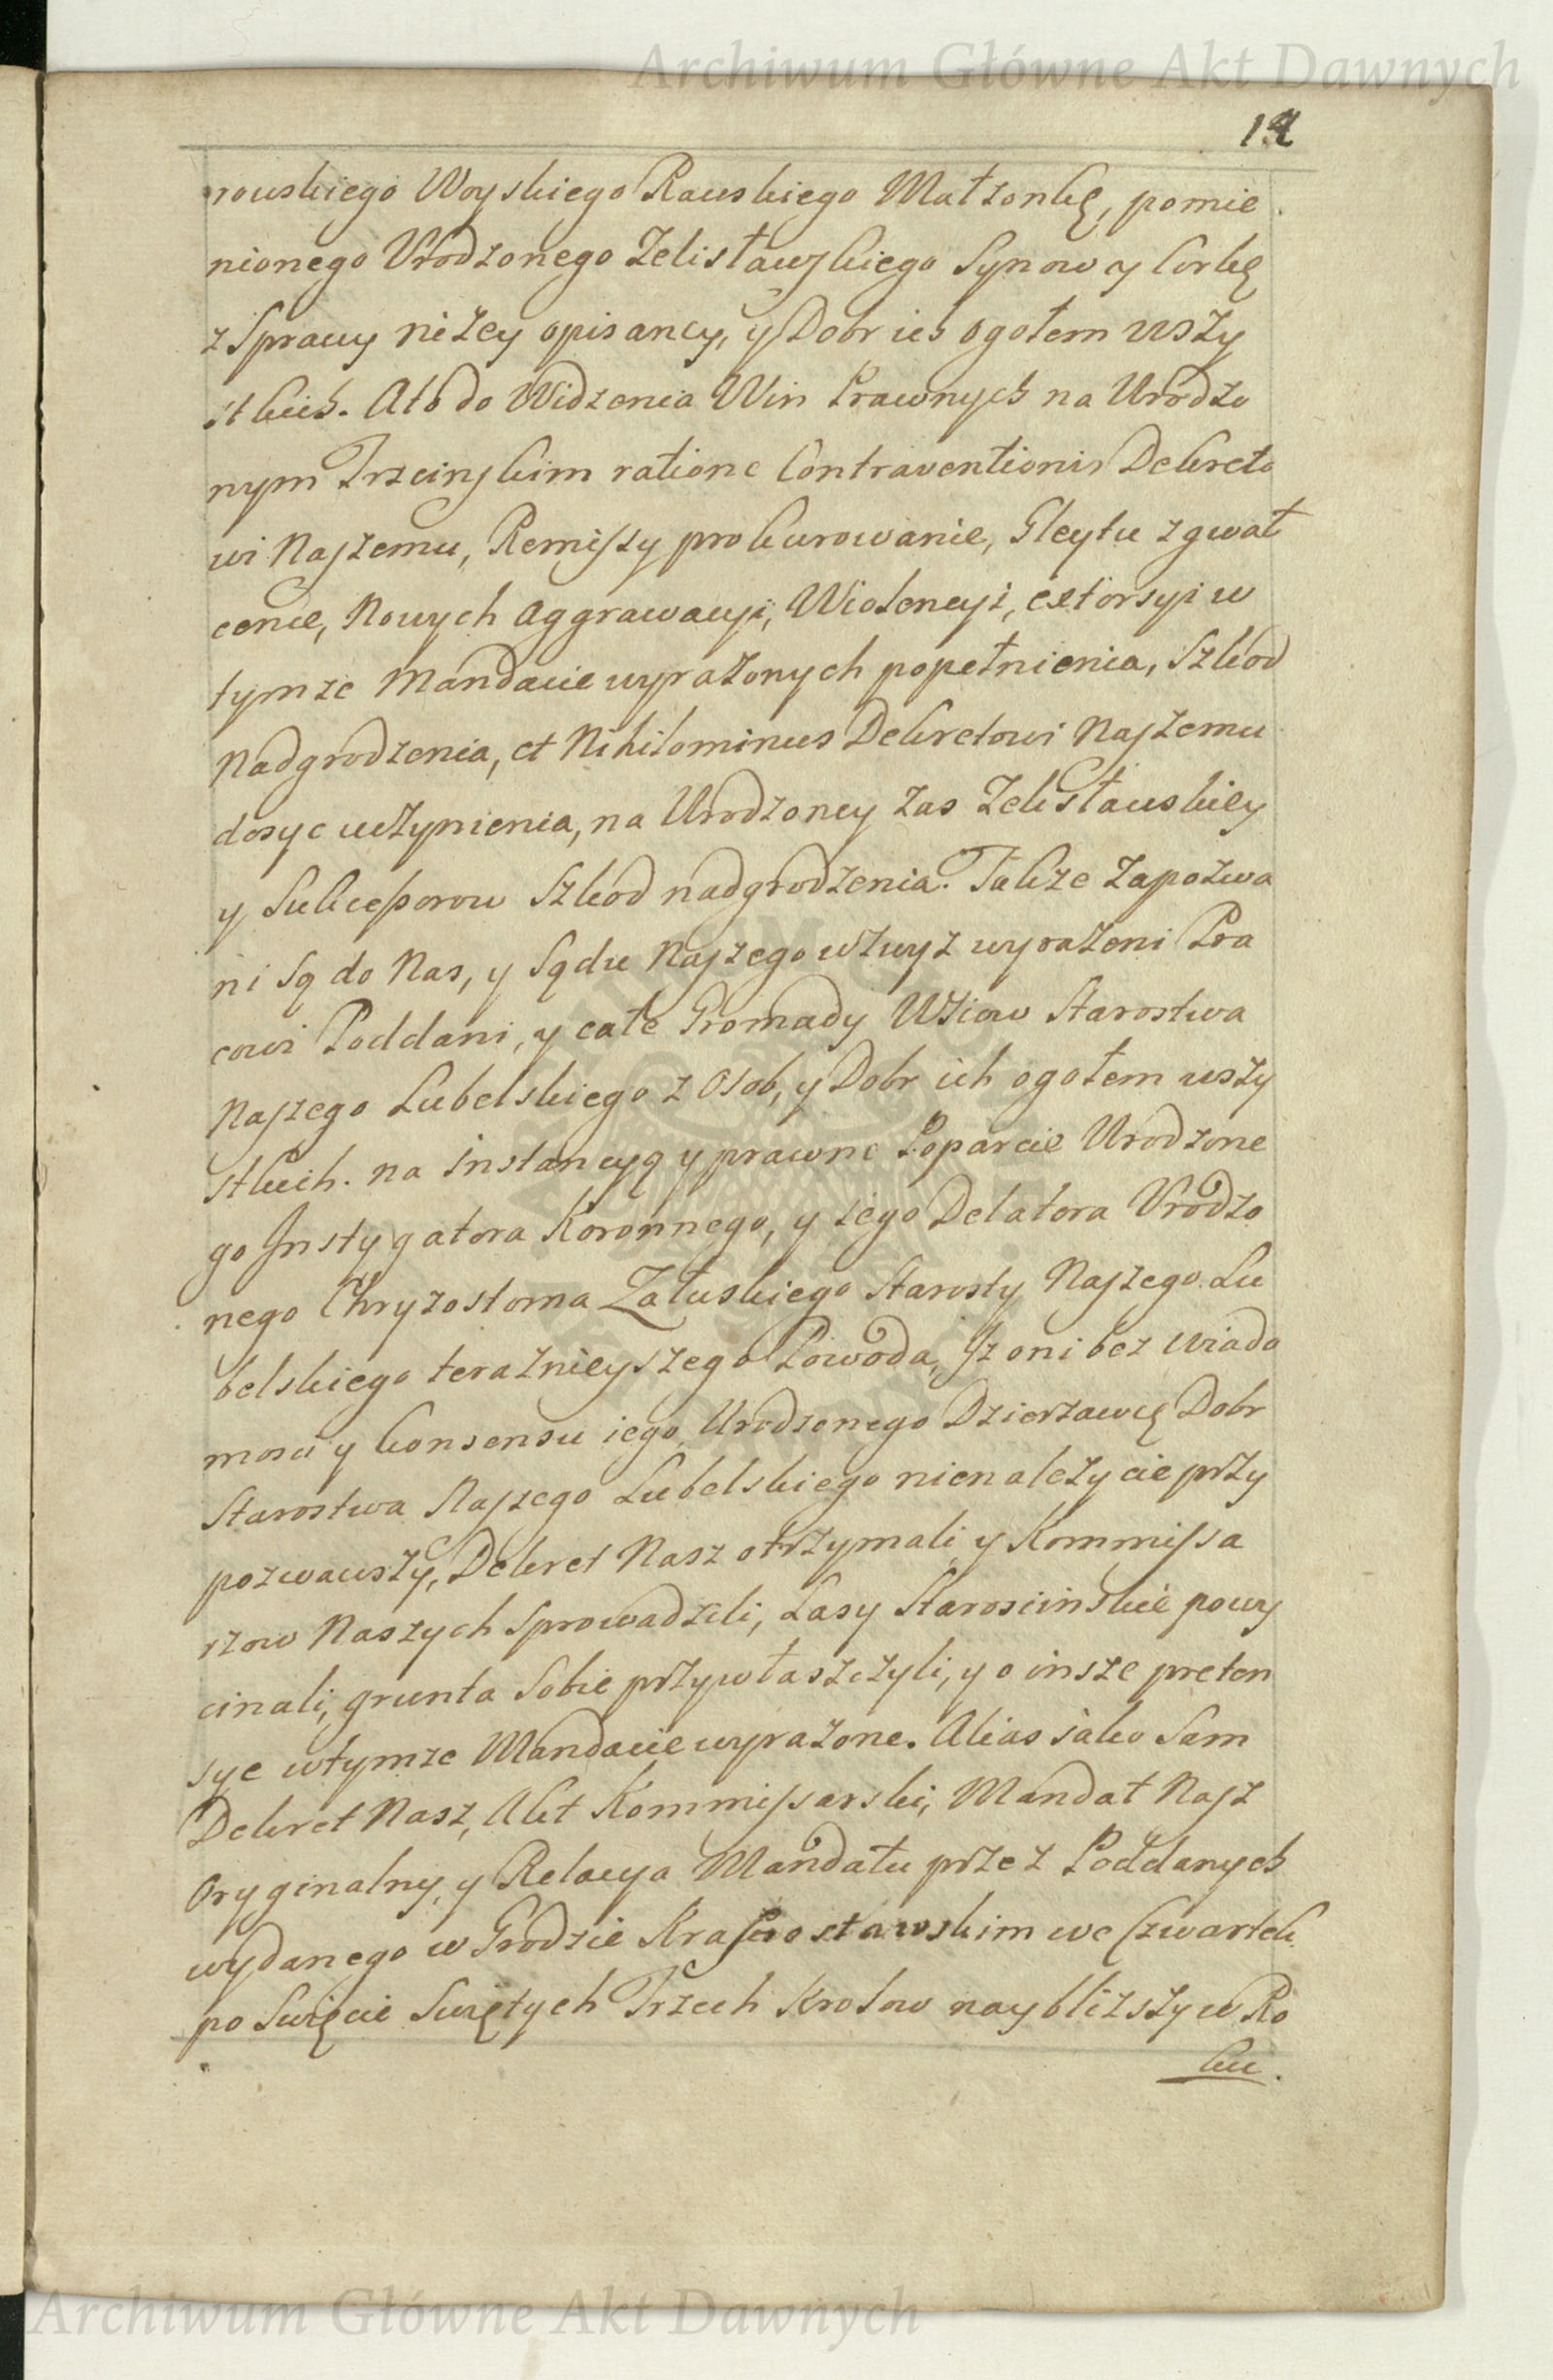 Archiwum Główne Akt Dawnych
12
rowskiego Woyskiego Rawskiego Małżonkę, pomie
nionego Urodzonego Zelisławskiego Synow y Corkę
z Sprawy niżey opisaney, y Dobr ich ogołem wszy
stkich. A to do Widzenia Win Prawnych na Urodzo
nym Trzcinskim ratione Contraventionis Dekreto
wi Naszemu, Remissy prokurowanie, Gleytu zgwał
cenie, Nowych aggrawacyi, Wiolencyi, extorsyi w
tymze Mandacie wyrażonych popełnienia, Szkod
Nadgrodzenia, et Nihilominus Dekretowi Naszemu
dosyc uczynienia, na Urodzoney zas Zelisławskiey
y Sukcessorow Szkod nadgrodzenia. Takze Zapozwa
ni Są do Nas, y Sądu Naszego wzwyż wyrażeni Pra
cowi Poddani, y całe Gromady Wsiow Starostwa
Naszego Lubelskiego z Osob, y Dobr ich ogołem wszy
stkich. na instancyą y prawne Poparcie Urodzone
go Instygatora Koronnego, y iego Delatora Urodzo
nego Chryzostoma Załuskiego Starosty Naszego Lu
belskiego terażnieyszego Powoda, Iz oni bez wiado
mosci y konsensu iego Urodzonego Dzierżawcę Dobr
Starostwa Naszego Lubelskiego nienależycie przy
pozwawszy, Dekret Nasz otrzymali y Kommissa
rzow Naszych Sprowadzili, Lasy Staroscinskie powy
cinali, grunta Sobie przywłaszczyli, y o insze preten
sye w tymze Mandacie wyrażone. Alias iako Sam
Dekret Nasz, Akt Kommissarski, Mandat Nasz
Oryginalny, y Relacya Mandatu przez Poddanych
wydanego w Grodzie Krasnostawskim we Czwartek
po Swięcie Swiętych Trzech Krolow naybliższy w Ro
ku.
Archiwum Główne Akt Dawnych